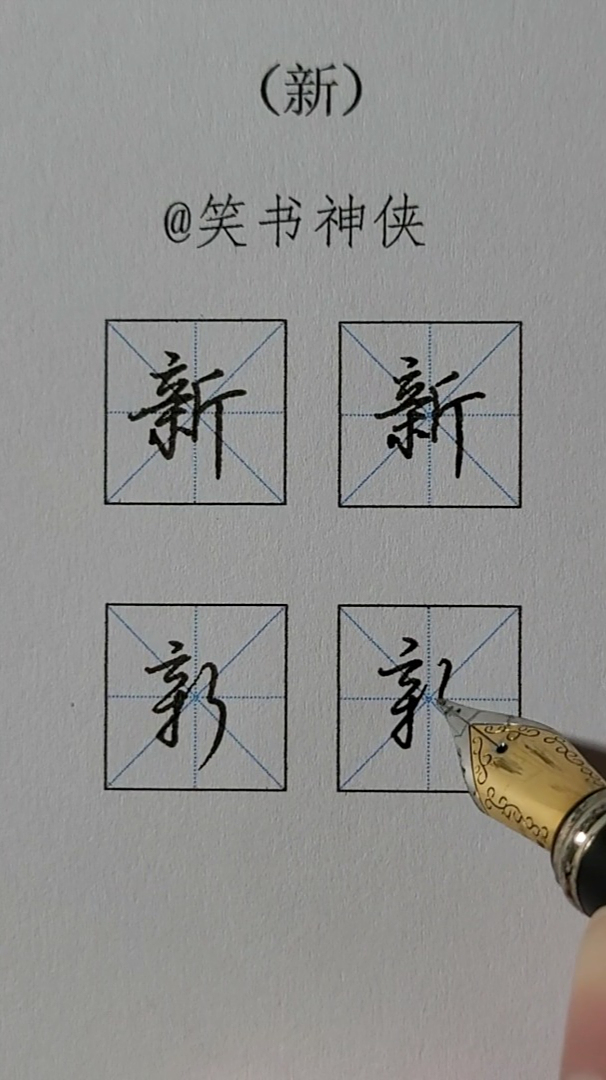 （新）
@笑书神侠
新 新
新 新